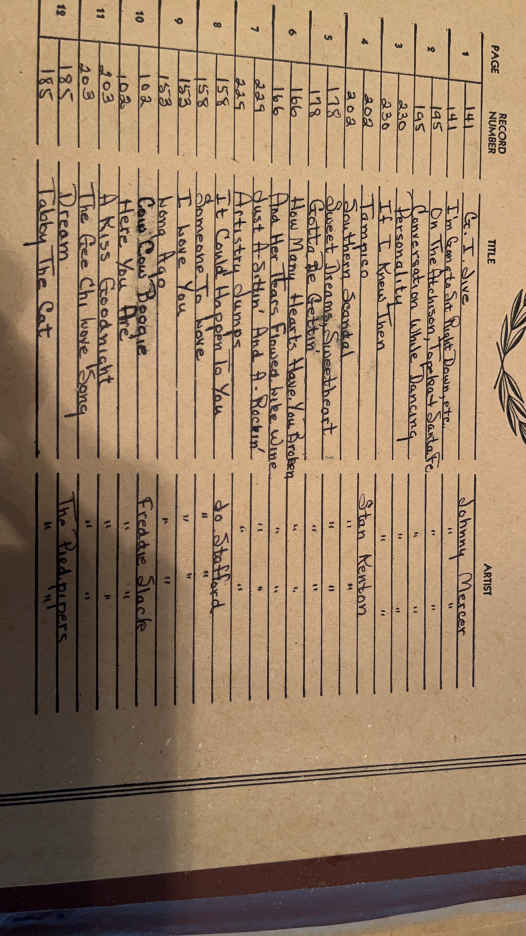 PAGE RECORD NUMBER TITLE ARTIST
1 141 G. I. Jive Johnny Mercer
141 I'm Gonna Sit Right Down, etc. " "
2 195 On The Atchison, Topeka & Santa Fe " "
195 Conversation While Dancing " "
3 230 Personality " "
230 If I Knew Then " "
4 202 Tampico Stan Kenton
202 Southern Scandal " "
5 178 Sweet Dreams, Sweetheart " "
178 Gotta Be Gettin' " "
6 166 How Many Hearts Have You Broken " "
166 And Her Tears Flowed Like Wine " "
7 229 Just A-Sittin' And A-Rockin' " "
229 Artistry Jumps " "
8 158 It Could Happen To You Jo Stafford
158 Someone To Love " "
9 153 I Love You " "
153 Long Ago " "
10 102 Cow Cow Boogie Freddie Slack
102 Here You Are " "
11 203 A Kiss Goodnight " "
203 The Gee Chi Love Song " "
12 185 Dream The Piedpipers
185 Tabby The Cat " "